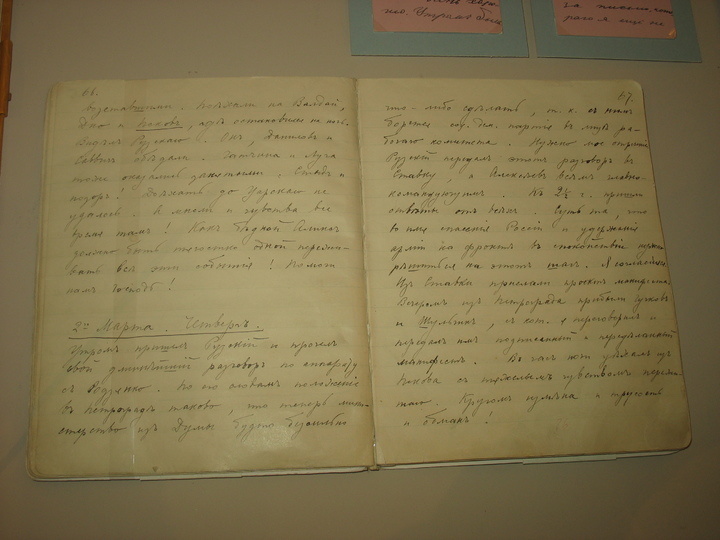 66.
возставшими. Поѣхали на Валдай,
Дно и Псковъ, гдѣ остановился на ночь.
Видѣлъ Рузскаго. Онъ, Даниловъ и
Саввичъ обѣдали. Гатчина и Луга
тоже оказались занятыми. Стыдъ и
позоръ! Доѣхать до Царскаго не
удалось. А мысли и чувства все
время тамъ! Какъ бѣдной Аликсъ
должно быть тягостно одной пережи-
вать всѣ эти событія! Помоги
намъ Господь!
2го Марта. Четвергъ.
Утромъ пришелъ Рузскій и прочелъ
свой длиннѣйшій разговоръ по аппарату
съ Родзянко. По его словамъ положеніе
въ Петроградѣ таково, что теперь мини-
стерство изъ Думы будто безсильно
67.
что-либо сдѣлать, т. к. съ нимъ
борется соц. дем. партія въ лицѣ ра-
бочаго комитета. Нужно мое отреченіе.
Рузскій передалъ этотъ разговоръ въ
Ставку, а Алексѣевъ всѣмъ главно-
командующимъ. Къ 2½ ч. пришли
отвѣты отъ всѣхъ. Суть та, что
во имя спасенія Россіи и удержанія
арміи на фронтѣ въ спокойствіи нужно
рѣшиться на этотъ шагъ. Я согласился.
Изъ Ставки прислали проектъ манифеста.
Вечеромъ изъ Петрограда прибыли Гучковъ
и Шульгинъ, съ кот. я переговорилъ и
передалъ имъ подписанный и передѣланный
манифестъ. Въ часъ ночи уѣхалъ изъ
Пскова съ тяжелымъ чувствомъ пережи-
таго. Кругомъ измѣна и трусость
и обманъ!